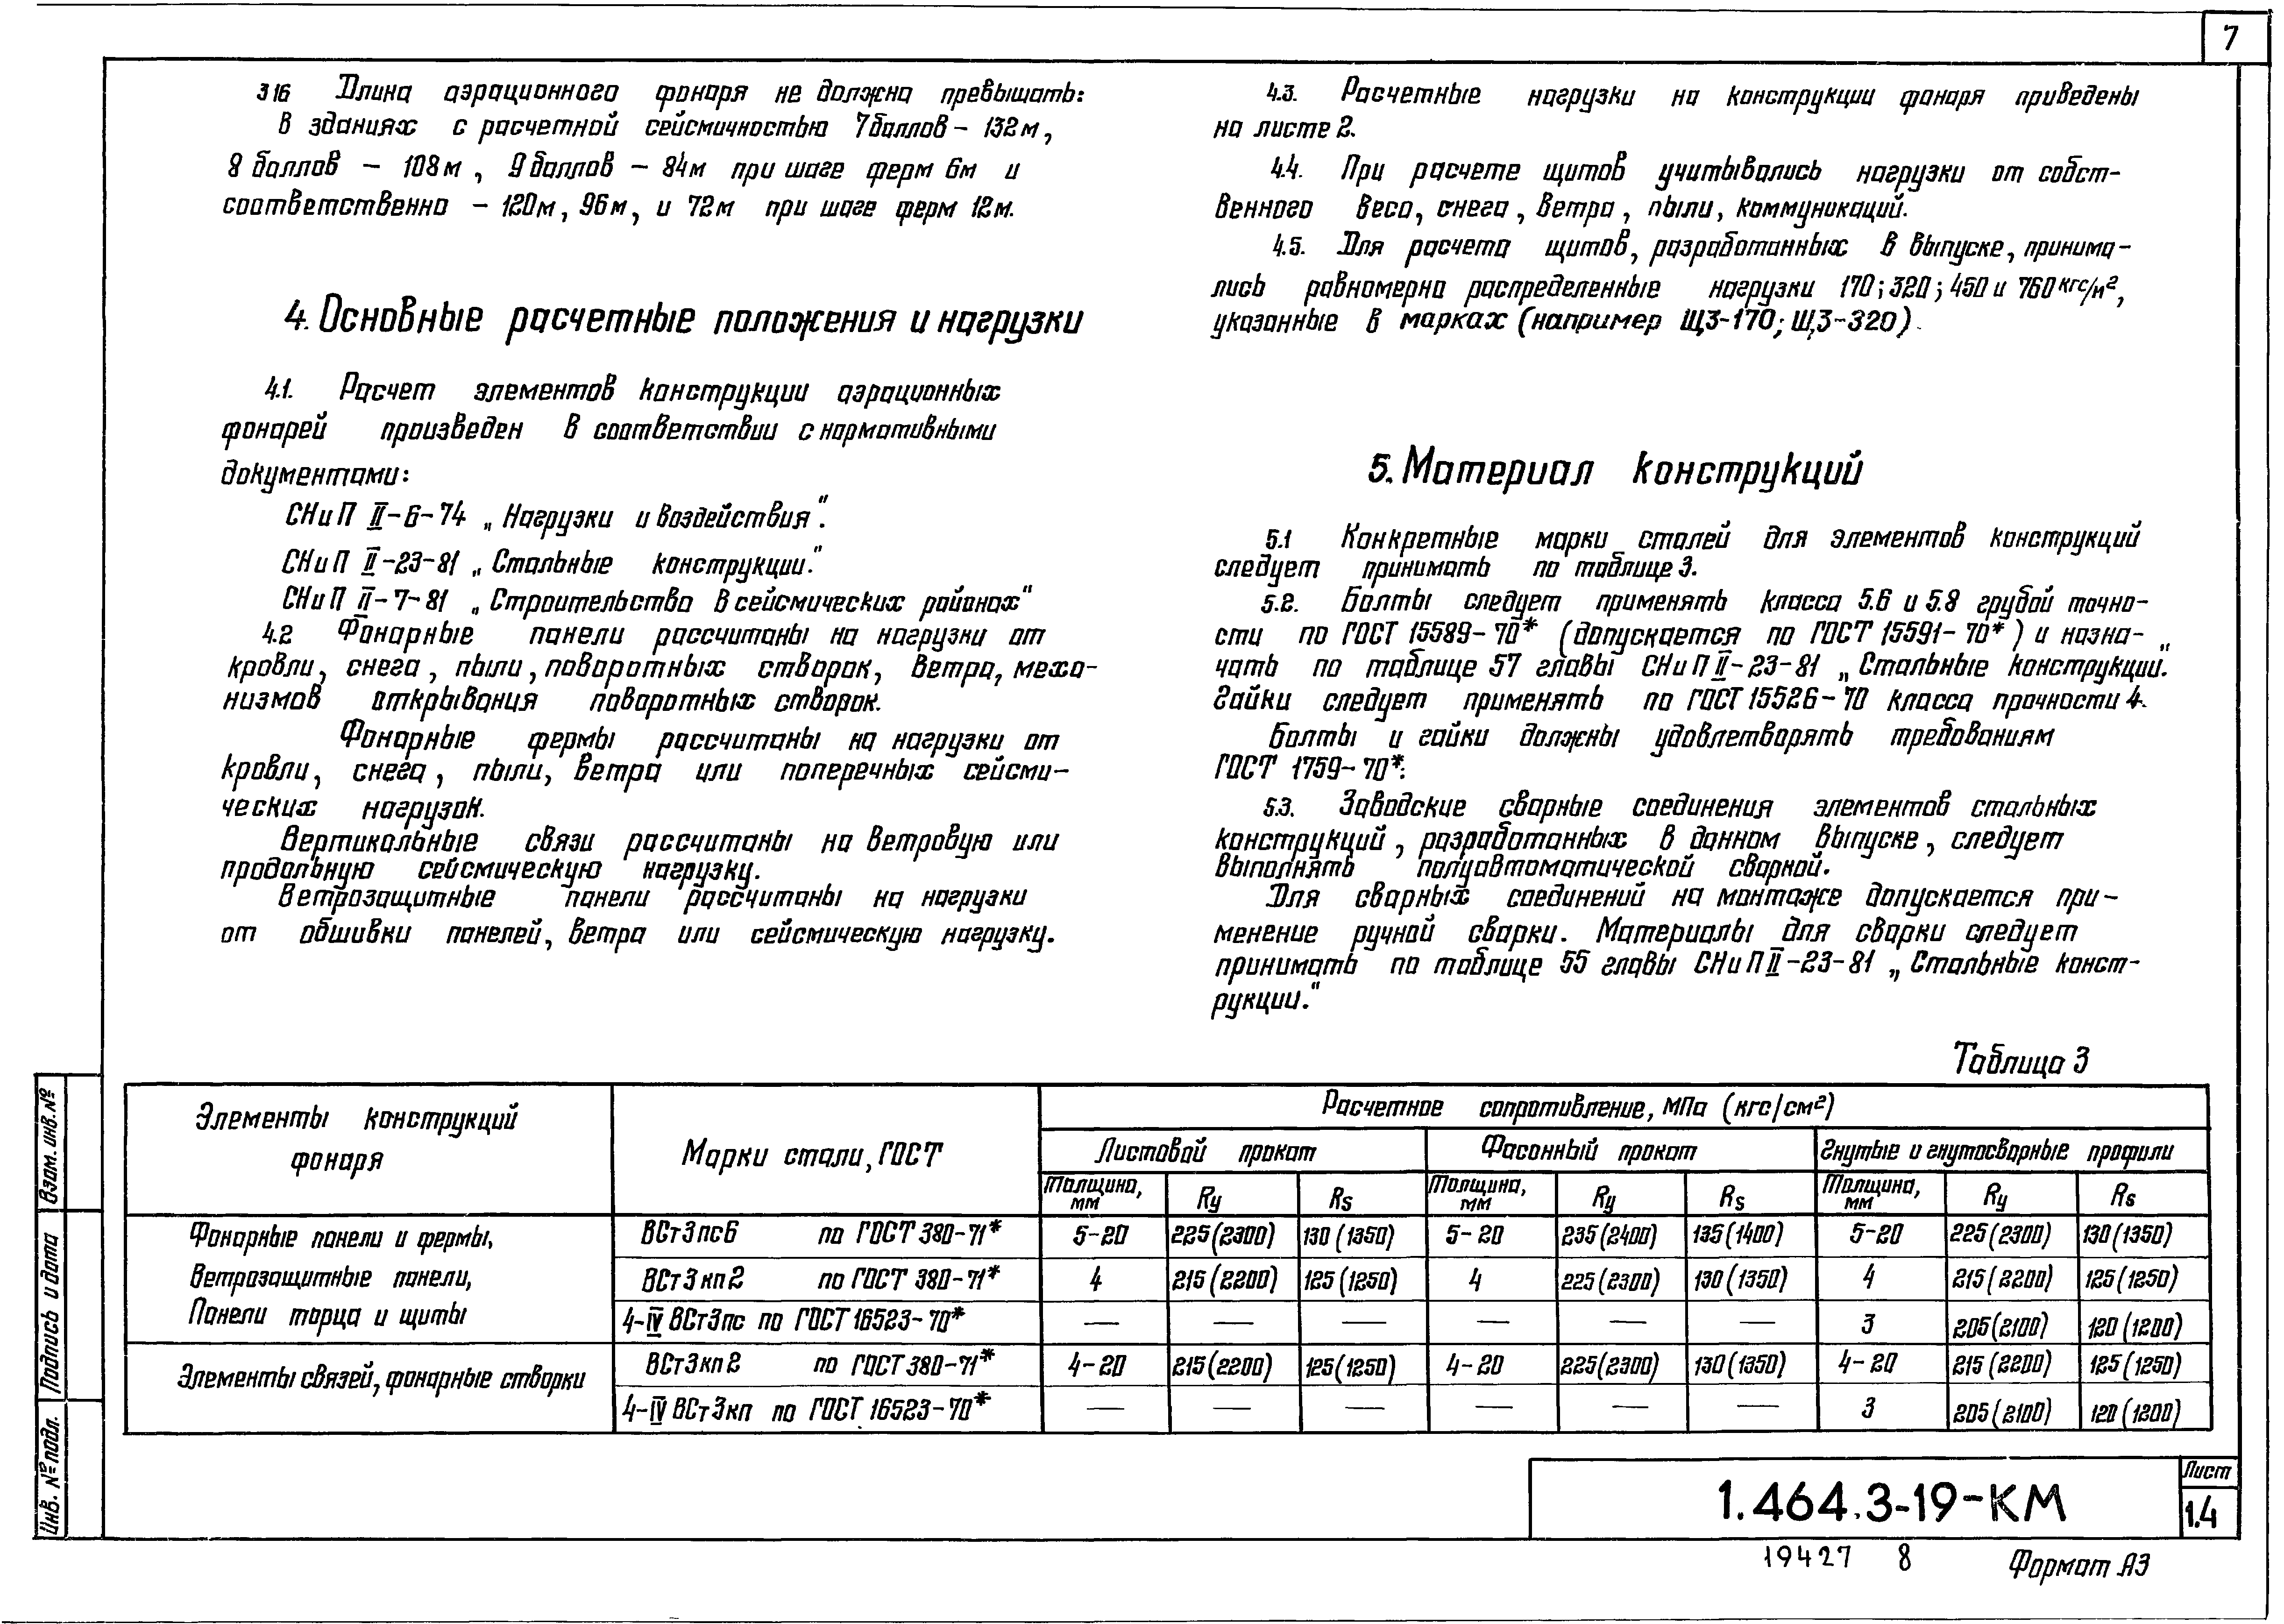 7
3.16 Длина аэрационного фонаря не должна превышать:
в зданиях с расчетной сейсмичностью 7 баллов – 132 м,
8 баллов – 108 м, 9 баллов – 84 м при шаге ферм 6 м и
соответственно – 120 м, 96 м, и 72 м при шаге ферм 12 м.
4. Основные расчетные положения и нагрузки
4.1. Расчет элементов конструкции аэрационных
фонарей произведен в соответствии с нормативными
документами:
СНиП II-6-74 „Нагрузки и воздействия".
СНиП II-23-81 „Стальные конструкции."
СНиП II-7-81 „Строительство в сейсмических районах"
4.2 Фонарные панели рассчитаны на нагрузки от
кровли, снега, пыли, поворотных створок, ветра, меха-
низмов открывания поворотных створок.
Фонарные фермы рассчитаны на нагрузки от
кровли, снега, пыли, ветра или поперечных сейсми-
ческих нагрузок.
Вертикальные связи рассчитаны на ветровую или
продольную сейсмическую нагрузку.
Ветрозащитные панели рассчитаны на нагрузки
от обшивки панелей, ветра или сейсмическую нагрузку.
4.3. Расчетные нагрузки на конструкции фонаря приведены
на листе 2.
4.4. При расчете щитов учитывались нагрузки от собст-
венного веса, снега, ветра, пыли, коммуникаций.
4.5. Для расчета щитов, разработанных в выпуске, принима-
лись равномерно распределенные нагрузки 170; 320; 450 и 760 кгс/м²,
указанные в марках (например Щ3-170; Щ3-320).
5. Материал конструкций
5.1 Конкретные марки сталей для элементов конструкций
следует принимать по таблице 3.
5.2. Болты следует применять класса 5.6 и 5.8 грубой точно-
сти по ГОСТ 15589-70* (допускается по ГОСТ 15591-70*) и назна-
чать по таблице 57 главы СНиП II-23-81 „Стальные конструкции."
Гайки следует применять по ГОСТ 15526-70 класса прочности 4.
Болты и гайки должны удовлетворять требованиям
ГОСТ 1759-70*.
5.3. Заводские сварные соединения элементов стальных
конструкций, разработанных в данном выпуске, следует
выполнять полуавтоматической сваркой.
Для сварных соединений на монтаже допускается при-
менение ручной сварки. Материалы для сварки следует
принимать по таблице 55 главы СНиП II-23-81 „Стальные конст-
рукции."
Таблица 3
Элементы конструкций фонаря Марки стали, ГОСТ Расчетное сопротивление, МПа (кгс/см²)
Листовой прокат Фасонный прокат Гнутые и гнутосварные профили
Толщина, мм Ry Rs Толщина, мм Ry Rs Толщина, мм Ry Rs
Фонарные панели и фермы, ВСт3пс6 по ГОСТ 380-71* 5-20 225(2300) 130(1350) 5-20 235(2400) 135(1400) 5-20 225(2300) 130(1350)
Ветрозащитные панели, ВСт3кп2 по ГОСТ 380-71* 4 215(2200) 125(1250) 4 225(2300) 130(1350) 4 215(2200) 125(1250)
Панели торца и щиты 4-IV ВСт3пс по ГОСТ 16523-70* — — — — — — 3 205(2100) 120(1200)
Элементы связей, фонарные створки ВСт3кп2 по ГОСТ 380-71* 4-20 215(2200) 125(1250) 4-20 225(2300) 130(1350) 4-20 215(2200) 125(1250)
4-IV ВСт3кп по ГОСТ 16523-70* — — — — — — 3 205(2100) 120(1200)
Взам. инв. №
Подпись и дата
Инв. № подл.
1.464.3-19-КМ
Лист
1.4
19427 8 Формат А3